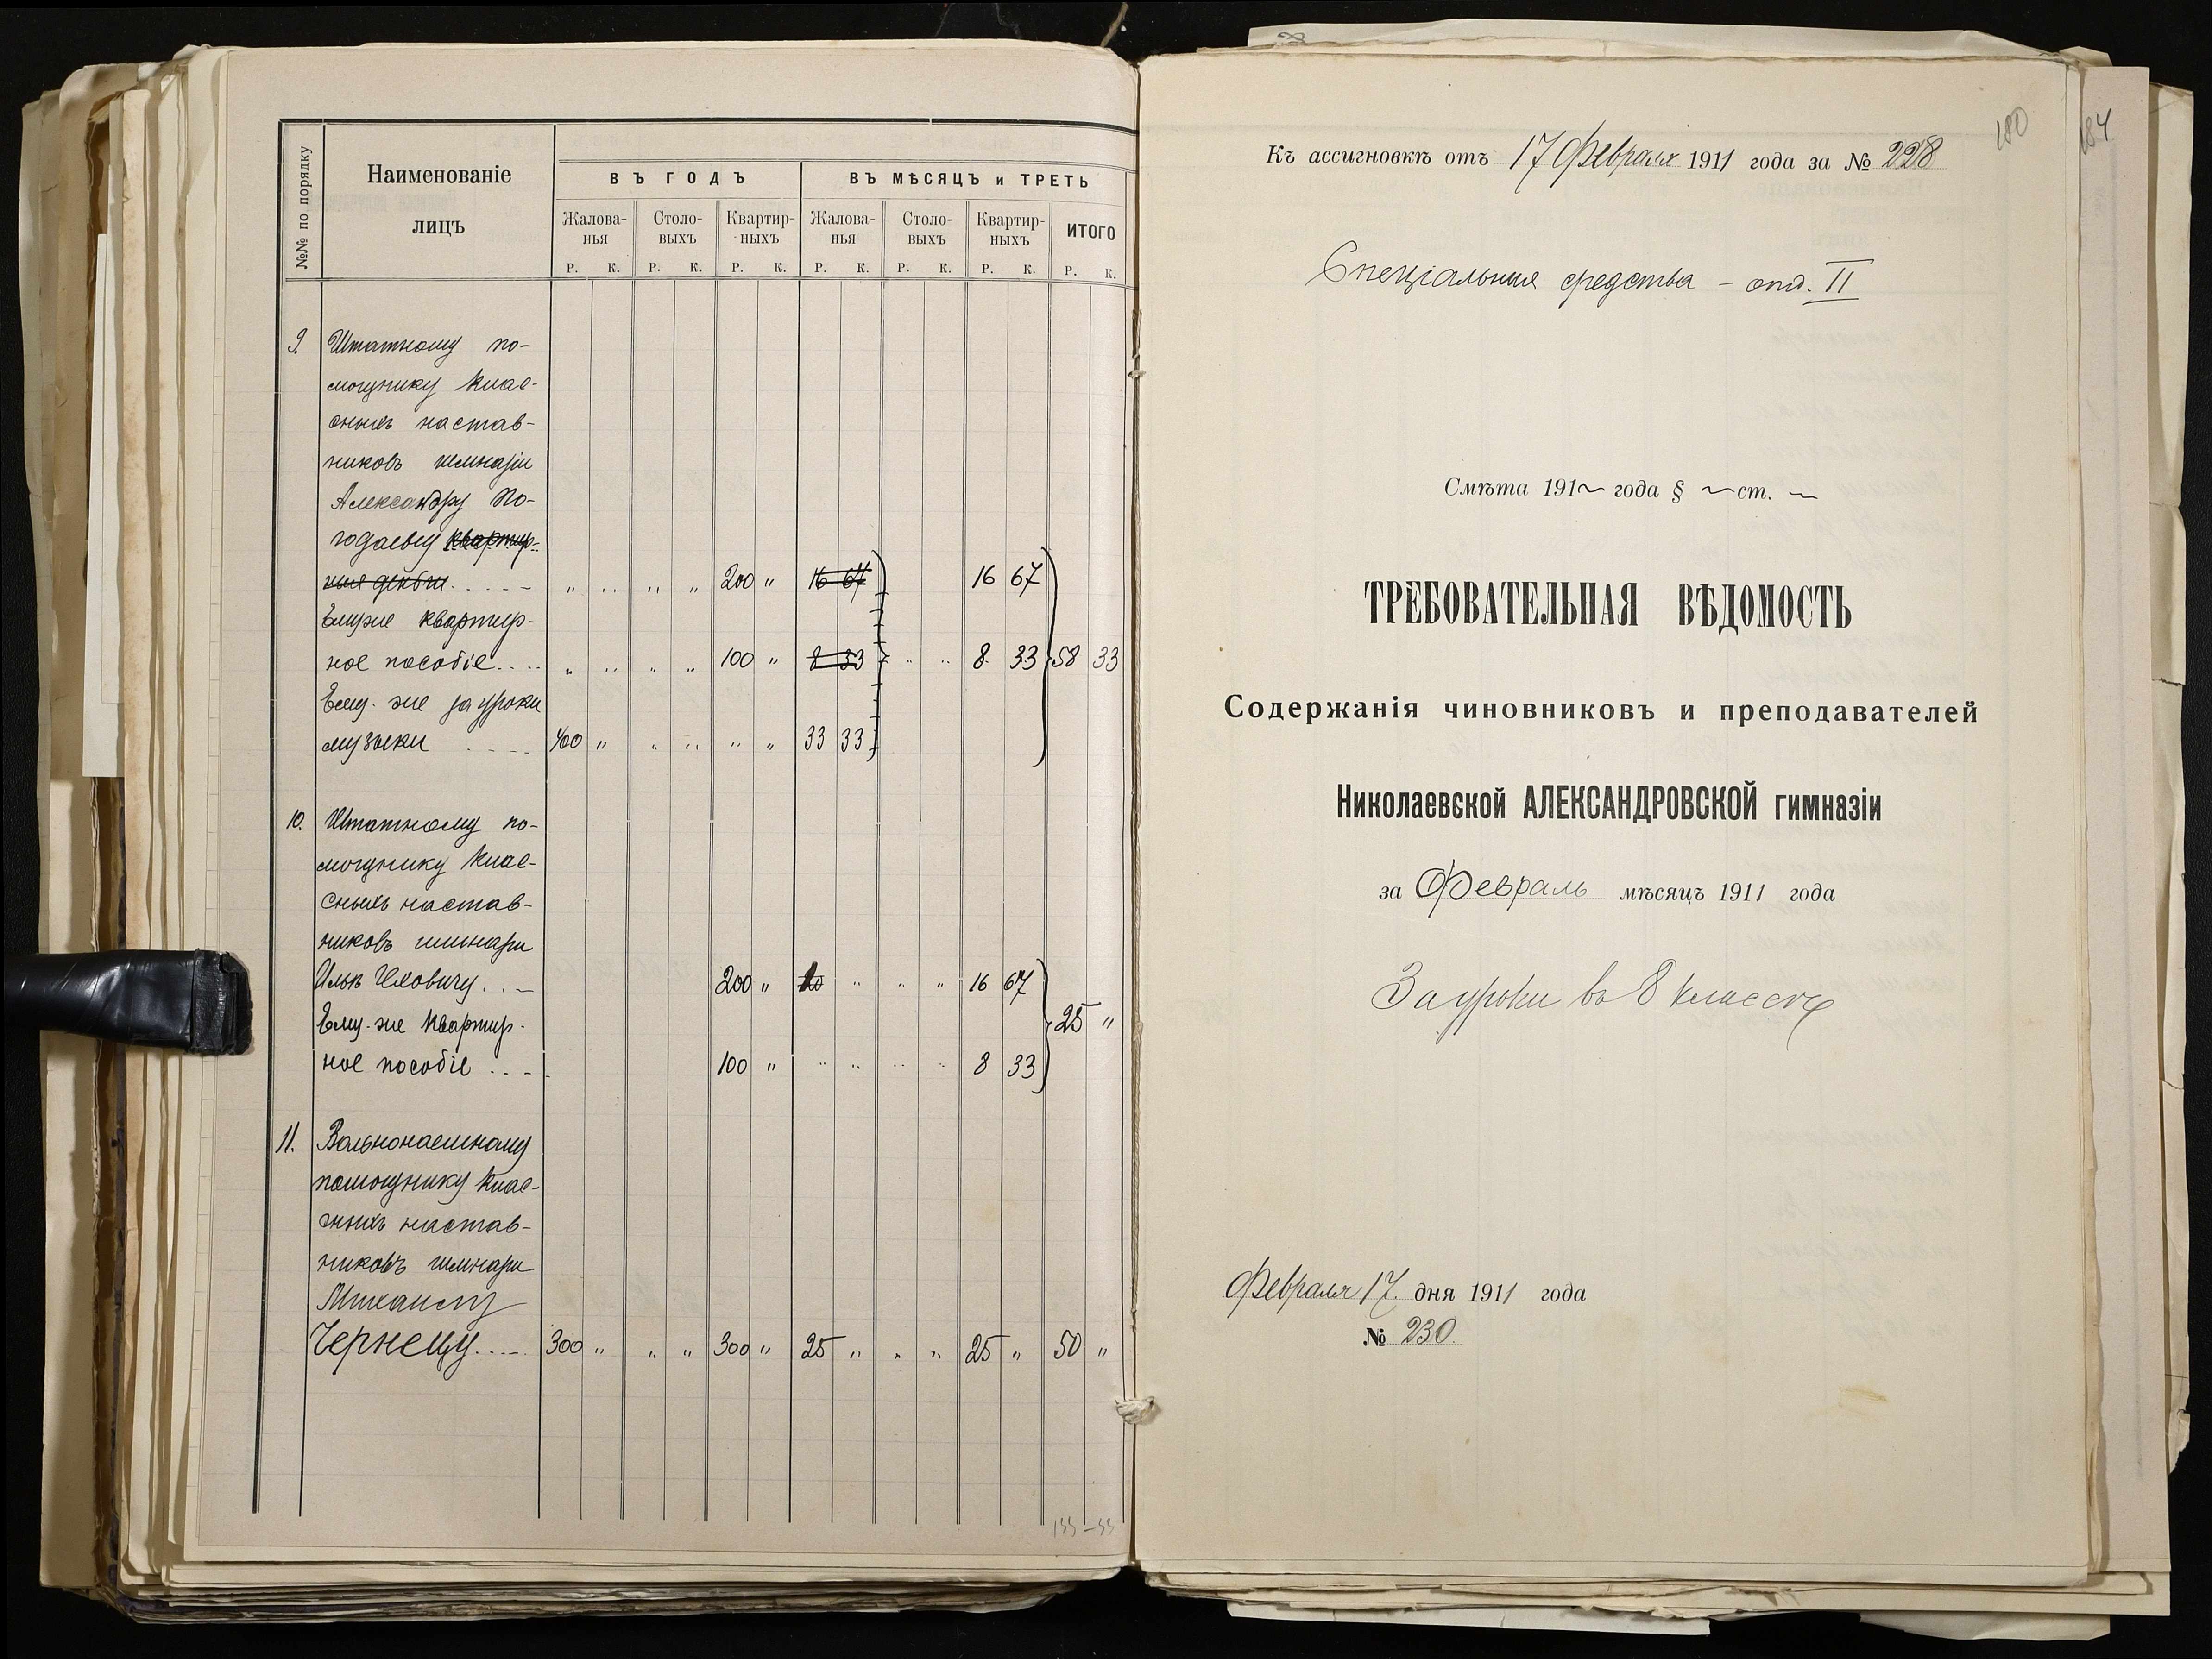 №№ по порядку
Наименованіе
лицъ
ВЪ ГОДЪ
ВЪ МѢСЯЦЪ и ТРЕТЬ
Жалова-
нья
Столо-
выхъ
Квартир-
ныхъ
Жалова-
нья
Столо-
выхъ
Квартир-
ныхъ
ИТОГО
Р. К. Р. К. Р. К. Р. К. Р. К. Р. К. Р. К.
9. Штатному по-
мощнику клас-
сныхъ настав-
никовъ гимназіи
Александру По-
годаеву квартир-
ныя деньги " " " " 200 " 16 67 16 67
Ему же квартир-
ное пособіе " " " " 100 " 8 33 " " 8 33 58 33
Ему-же за уроки
музыки 400 " " " " " 33 33
10. Штатному по-
мощнику клас-
сныхъ настав-
никовъ гимназіи
Ильѣ 200 " " " " 16 67
Ему-же квартир- 25 "
ное пособіе 100 " " " " " 8 33
11. Вольнонаемному
помощнику клас-
сныхъ настав-
никовъ гимназіи
Михаилу
Чернецу 300 " " " 300 " 25 " " " 25 " 50 "
133-33
180
184
Къ ассигновкѣ отъ 17 Февраля 1911 года за № 228
Спеціальныя средства - отд. II
Смѣта 191~ года § ~ ст. ~
ТРЕБОВАТЕЛЬНАЯ ВѢДОМОСТЬ
Содержанія чиновниковъ и преподавателей
Николаевской АЛЕКСАНДРОВСКОЙ гимназіи
за Февраль мѣсяцъ 1911 года
За уроки въ 8 классѣ
Февраля 17 дня 1911 года
№ 230.